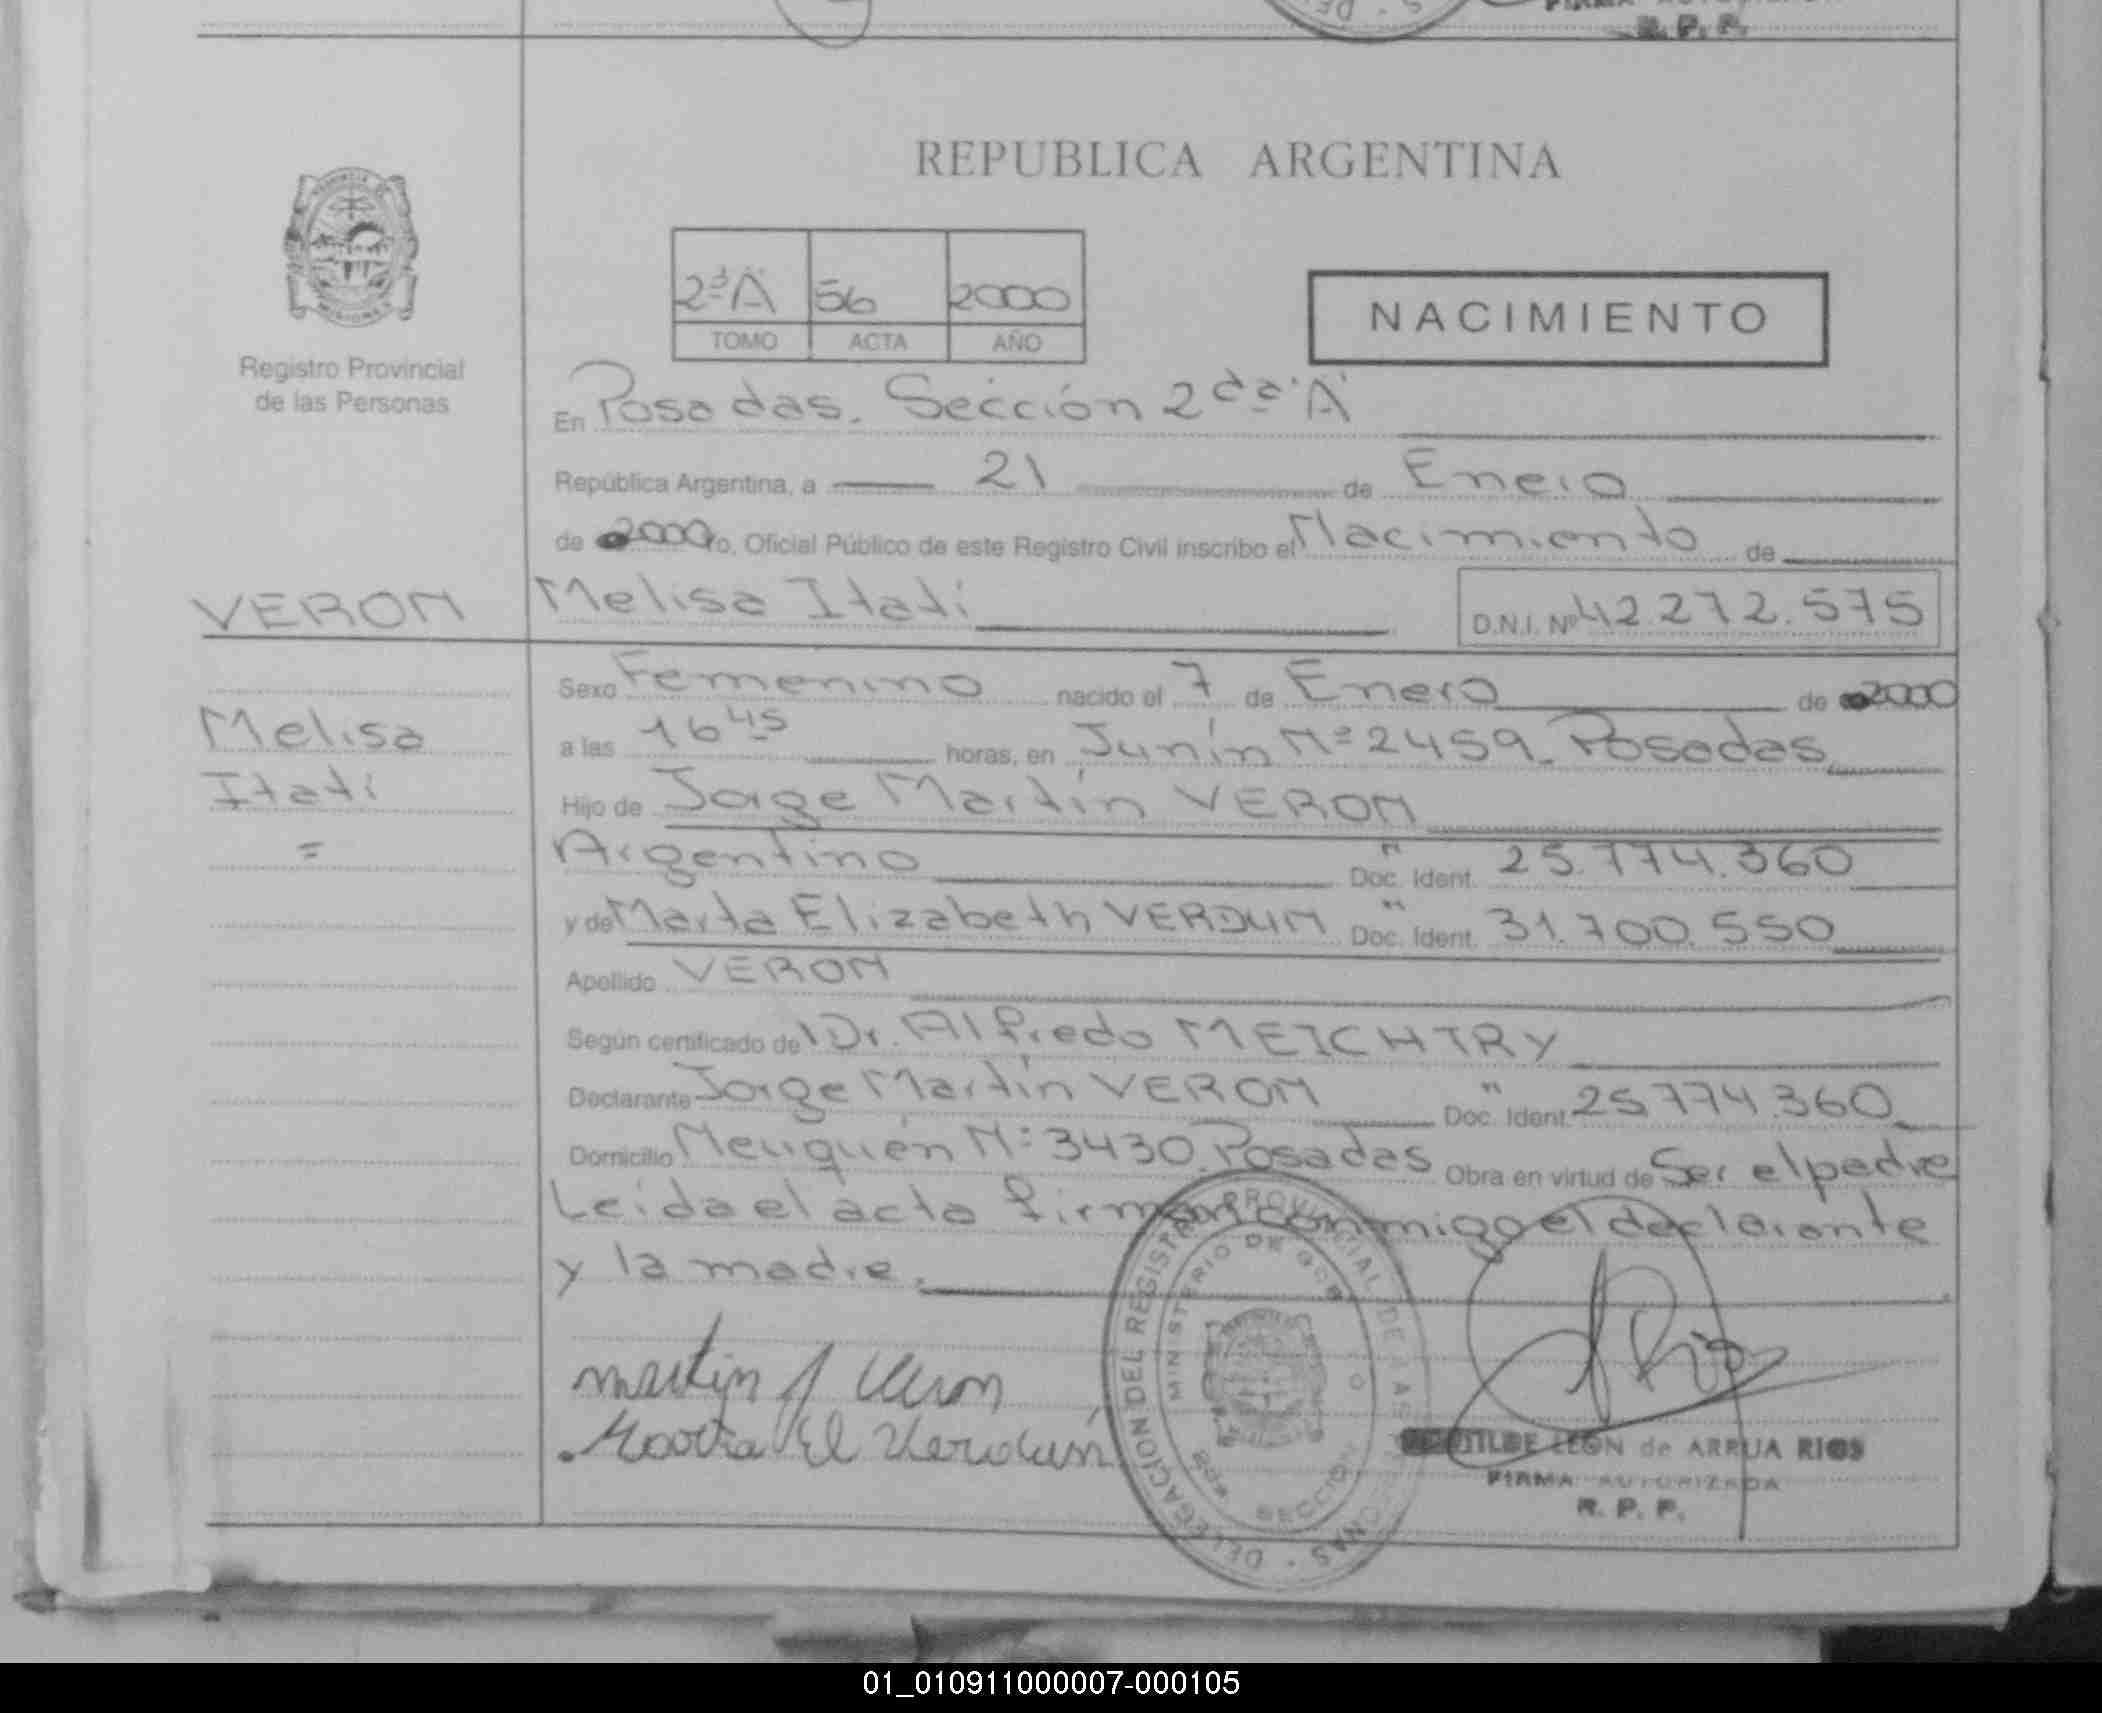 R. P. P.
REPUBLICA ARGENTINA
2dª"A" 56 2000
TOMO ACTA AÑO
NACIMIENTO
Registro Provincial
de las Personas
En Posadas. Sección 2da "A"
República Argentina, a 21 de Enero
de 2000 Yo, Oficial Público de este Registro Civil inscribo el Nacimiento de
VERON Melisa Itatí D.N.I. Nº 42.272.575
Sexo Femenino nacido el 7 de Enero de 2000
Melisa
a las 16 45 horas, en Junín Nº 2459. Posadas
Itatí
Hijo de Jorge Martín VERON
=
Argentino Doc. Ident. " 25.774.360
y de Marta Elizabeth VERDUN Doc. Ident. " 31.700.550
Apellido VERON
Según certificado del Dr. Alfredo MEICHTRY
Declarante Jorge Martín VERON Doc. Ident. " 25774.360
Domicilio Neuquén Nº 3430. Posadas Obra en virtud de Ser el padre
Leída el acta firman conmigo el declarante
y la madre.
DELEGACION DEL REGISTRO PROVINCIAL DE LAS PERSONAS
MINISTERIO DE GOB
SECCION
martin J Veron
Marta El Verdún
LEON de ARRUA RIOS
FIRMA AUTORIZADA
R. P. P.
01_010911000007-000105